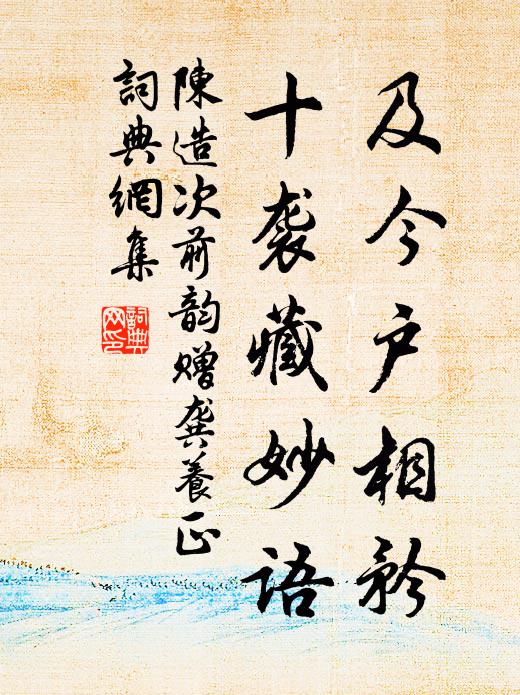 及今户相矜
十袭藏妙語
陳造次前韵贈龔養正
詞典網集
詞典
网印